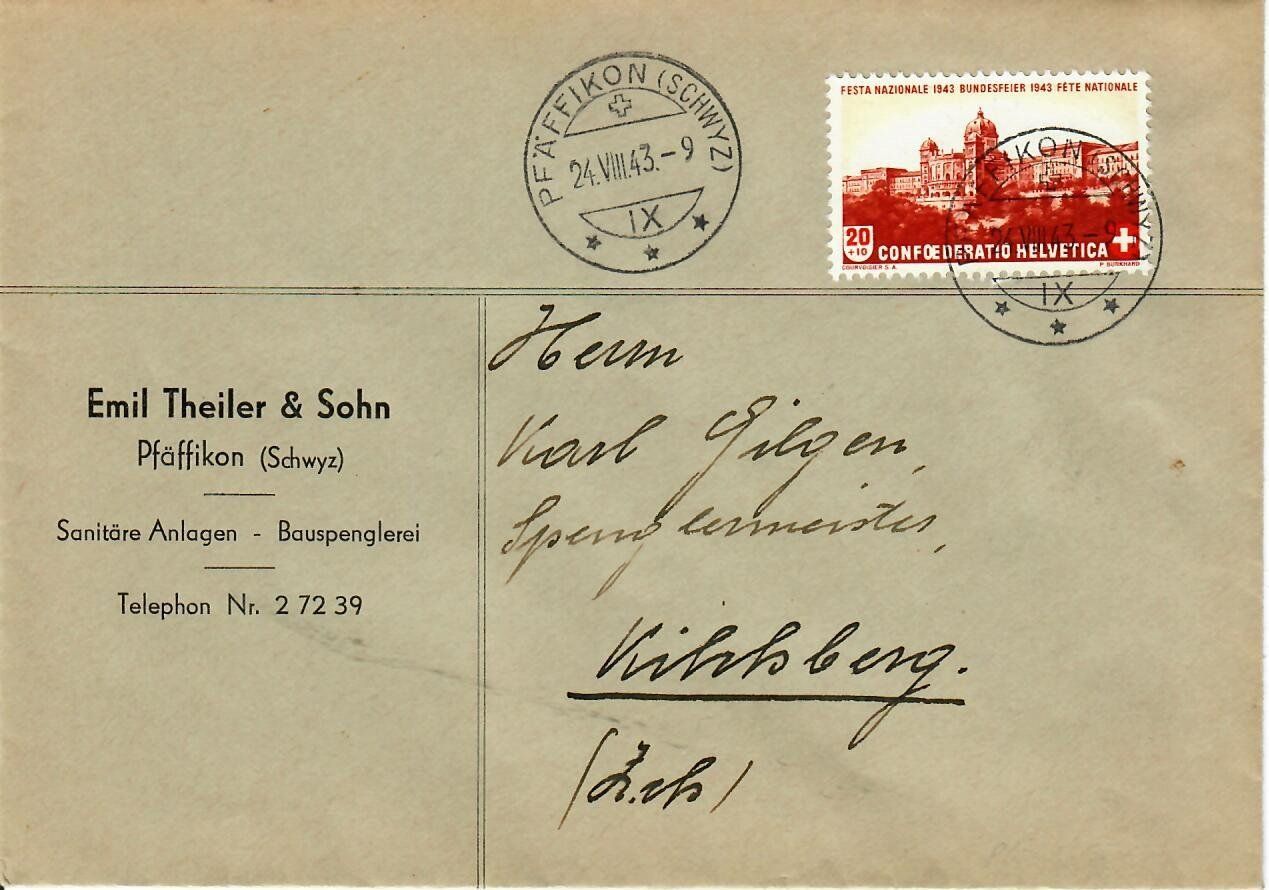 PFÄFFIKON (SCHWYZ)
24.VIII.43.-9
IX
FESTA NAZIONALE 1943 BUNDESFEIER 1943 FÊTE NATIONALE
20
+10
CONFŒDERATIO HELVETICA
COURVOISIER S.A.
F BURKHARD
PFÄFFIKON (SCHWYZ)
24.VIII.43.-9
IX
Emil Theiler & Sohn
Pfäffikon (Schwyz)
Sanitäre Anlagen - Bauspenglerei
Telephon Nr. 2 72 39
Herrn
Karl Gilgen,
Spenglermeister,
Kilchberg.
(Zch)